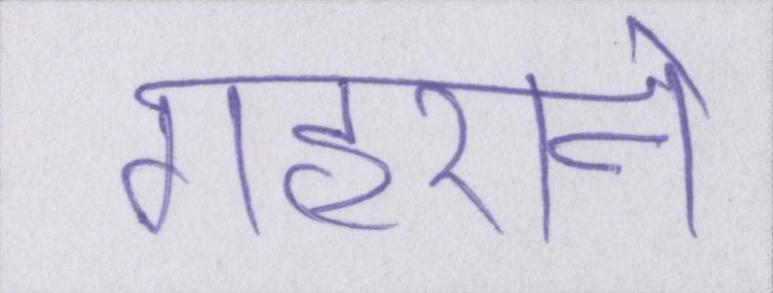 गहराने